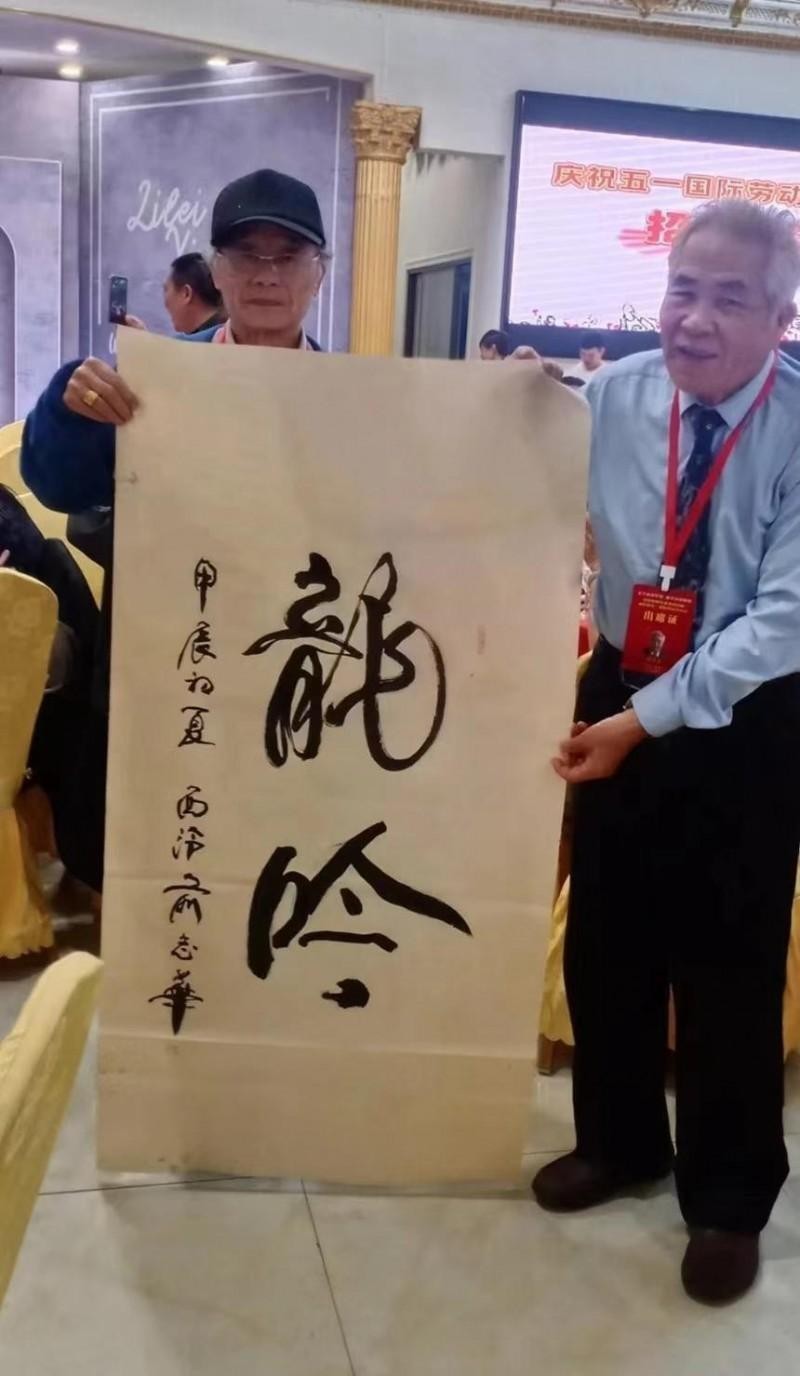 Lilei
庆祝五一国际劳动
招
龍吟
甲辰初夏 西泠俞志華
出席证